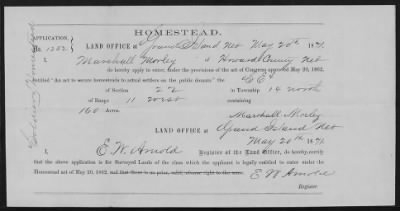 HOMESTEAD.
APPLICATION.
No. 1252
LAND OFFICE at Grand Island Neb May 20th 1871.
I, Marshall Morley of Howard County Neb
do hereby apply to enter, under the provisions of the act of Congress approved May 20, 1862,
entitled "An act to secure homesteads to actual settlers on the public domain," the SE¼
of Section 22 in Township 14 north
of Range 11 west containing
160 Acres.
Marshall Morley
LAND OFFICE at Grand Island Neb
May 20th 1871.
I, E. W. Arnold Register of the Land Office, do hereby certify
that the above application is for Surveyed Lands of the class which the applicant is legally entitled to enter under the
Homestead act of May 20, 1862, and that there is no prior, valid, adverse right to the same.
E W Arnold
Register
Soldiers Homestead